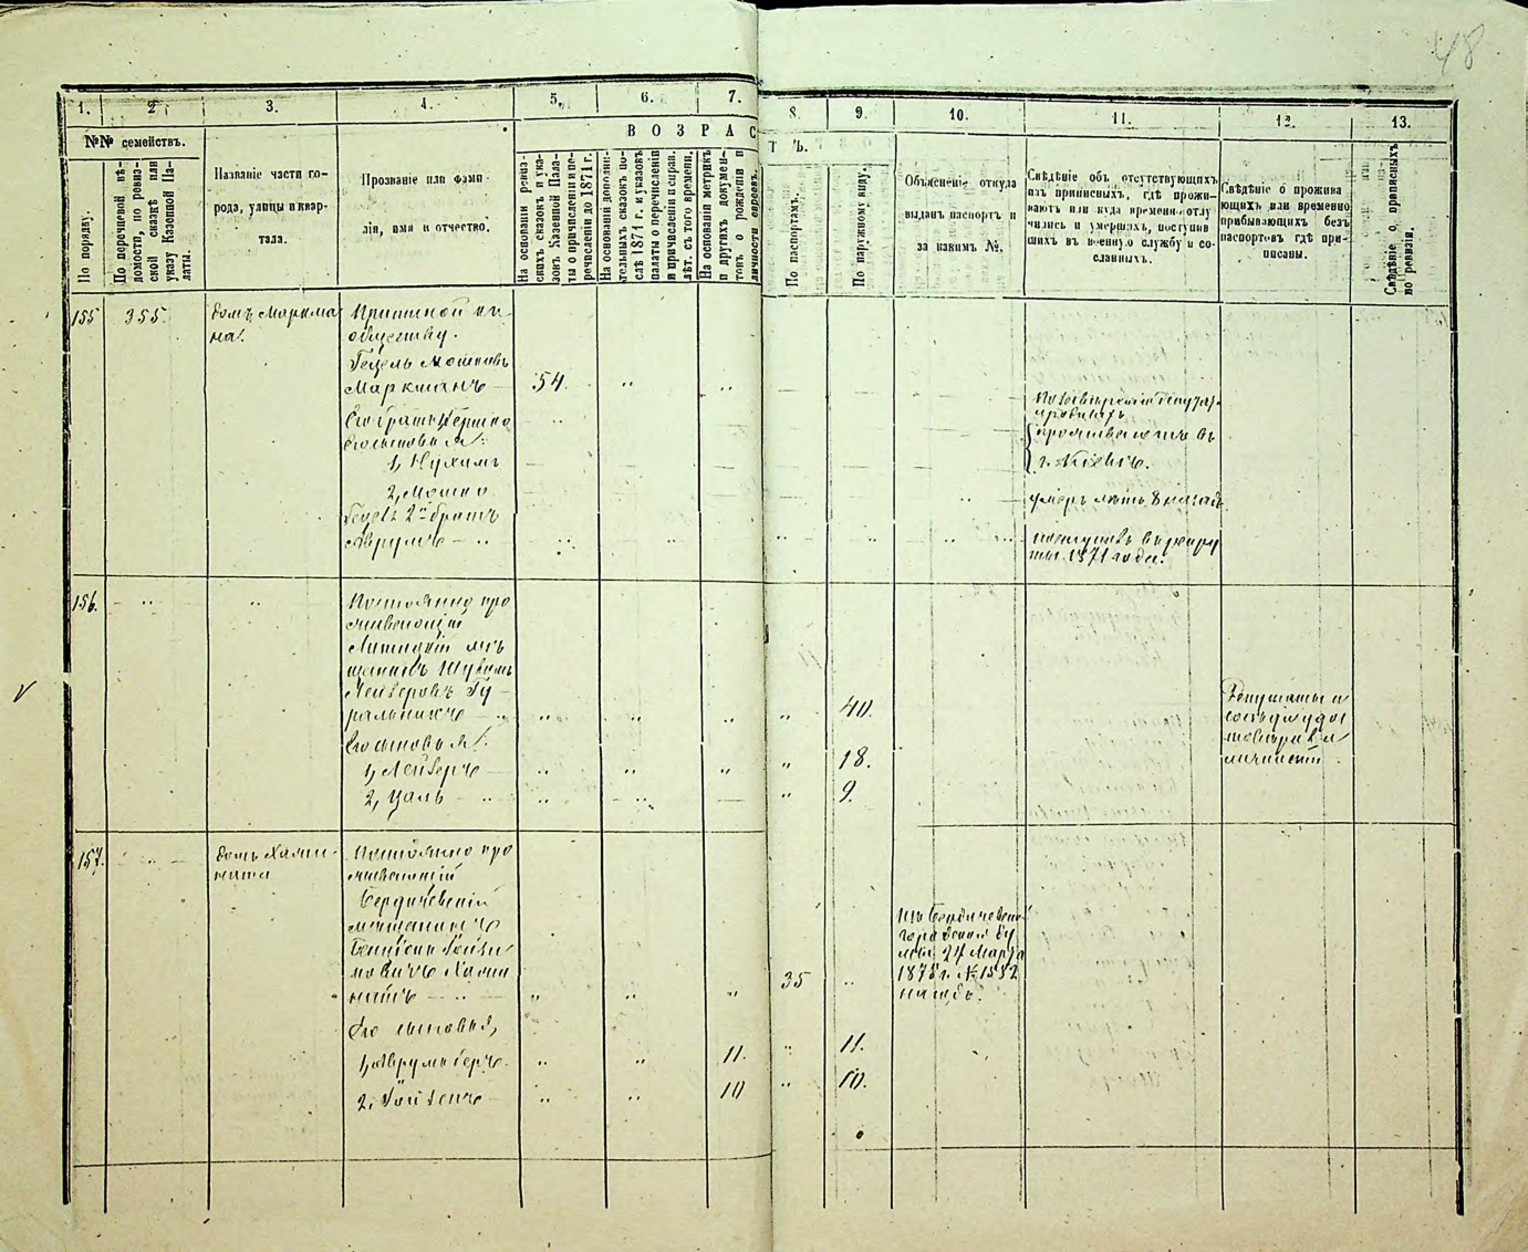 48
1. 2. 3. 4. 5, 6. 7. 8. 9. 10. 11. 12. 13.
№№ семействъ.
По порядку.
По перечневой вѣ-
домости, по ревиз-
ской сказкѣ или
указу Казенной Па-
латы.
Названіе части го-
рода, улицы и квар-
тала.
Прозваніе или фами-
лія, имя и отчество.
ВОЗРАСТЪ.
На основаніи ревиз-
скихъ сказокъ и ука-
зовъ Казенной Пала-
ты о причисленіи и пе-
речисленіи до 1871 г.
На основаніи дополни-
тельныхъ сказокъ по-
слѣ 1871 г. и указовъ
палаты о перечисленіи
и причисленіи и справ.
лѣт. съ того времени.
На основаніи метрикъ
и другихъ докумен-
товъ о рожденіи и
личности евреевъ.
По паспортамъ.
По наружному виду.
Объясненіе откуда
выданъ паспортъ и
за какимъ №.
Свѣдѣніе объ отсутствующихъ
изъ приписныхъ, гдѣ прожи-
ваютъ или куда временно отлу
чились и умершихъ, поступив
шихъ въ военную службу и со-
сланныхъ.
Свѣдѣніе о прожива
ющихъ или временно
прибывающихъ безъ
паспортовъ гдѣ при-
писаны.
Свѣдѣніе о приписныхъ
по ревизіи.
155 355. домъ Маркма
на.
обществу.
Гецель Мошковъ
Маркманъ — 54.
Его братъ Бершко
Его сыновья:
1, Нухимъ
2, Мошко
Гецеля 2й братъ
Аврумъ
проживаютъ въ
г. Кіевѣ.
умеръ лѣтъ 8 назадъ
поступилъ въ рекру
ты 1871 года.
156.
Постоянно про
живающій
Липецкій мѣ
щанинъ
Лейзеровъ Гу-
ральникъ 40.
Его сыновья:
1, Лейзеръ — 18.
2, Цаль 9.
Депутаты и
157. домъ Халм-
ната
Постоянно про
живающій
Бердичевскій
мѣщанинъ
мовичъ Халм
натъ 35
Изъ Бердичевской
городской Ду
мы 24 Марта
1875 г. № 1552
на годъ.
Его сыновья,
1, Аврумъ Беръ 11. 11.
2, 10 10.